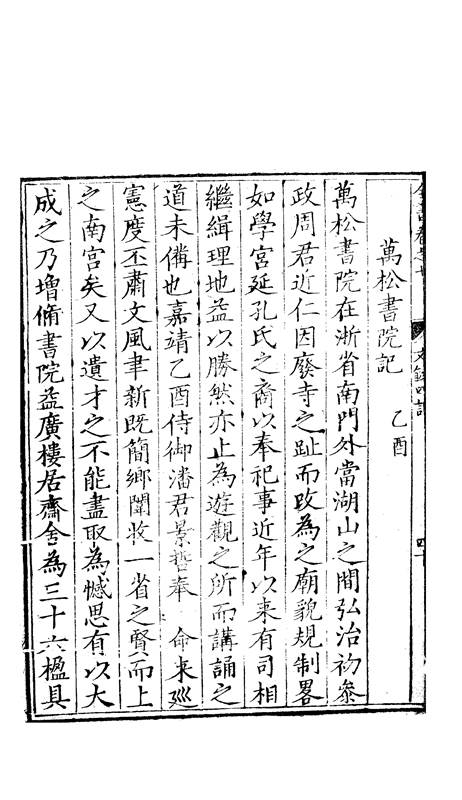 全書卷之七
文錄四記
四十
萬松書院記 乙酉
萬松書院在浙省南門外當湖山之間弘治初叅
政周君近仁因廢寺之趾而改為之廟貌規制畧
如學宮延孔氏之裔以奉祀事近年以來有司相
繼緝理地益以勝然亦止為遊觀之所而講誦之
道未備也嘉靖乙酉侍御潘君景哲奉 命來廵
憲度丕肅文風聿新既簡鄉闈收一省之賢而上
之南宮矣又以遺才之不能盡取為憾思有以大
成之乃增脩書院益廣樓居齋舍為三十六楹具